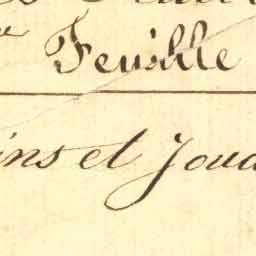 Feuille
ins et Joua